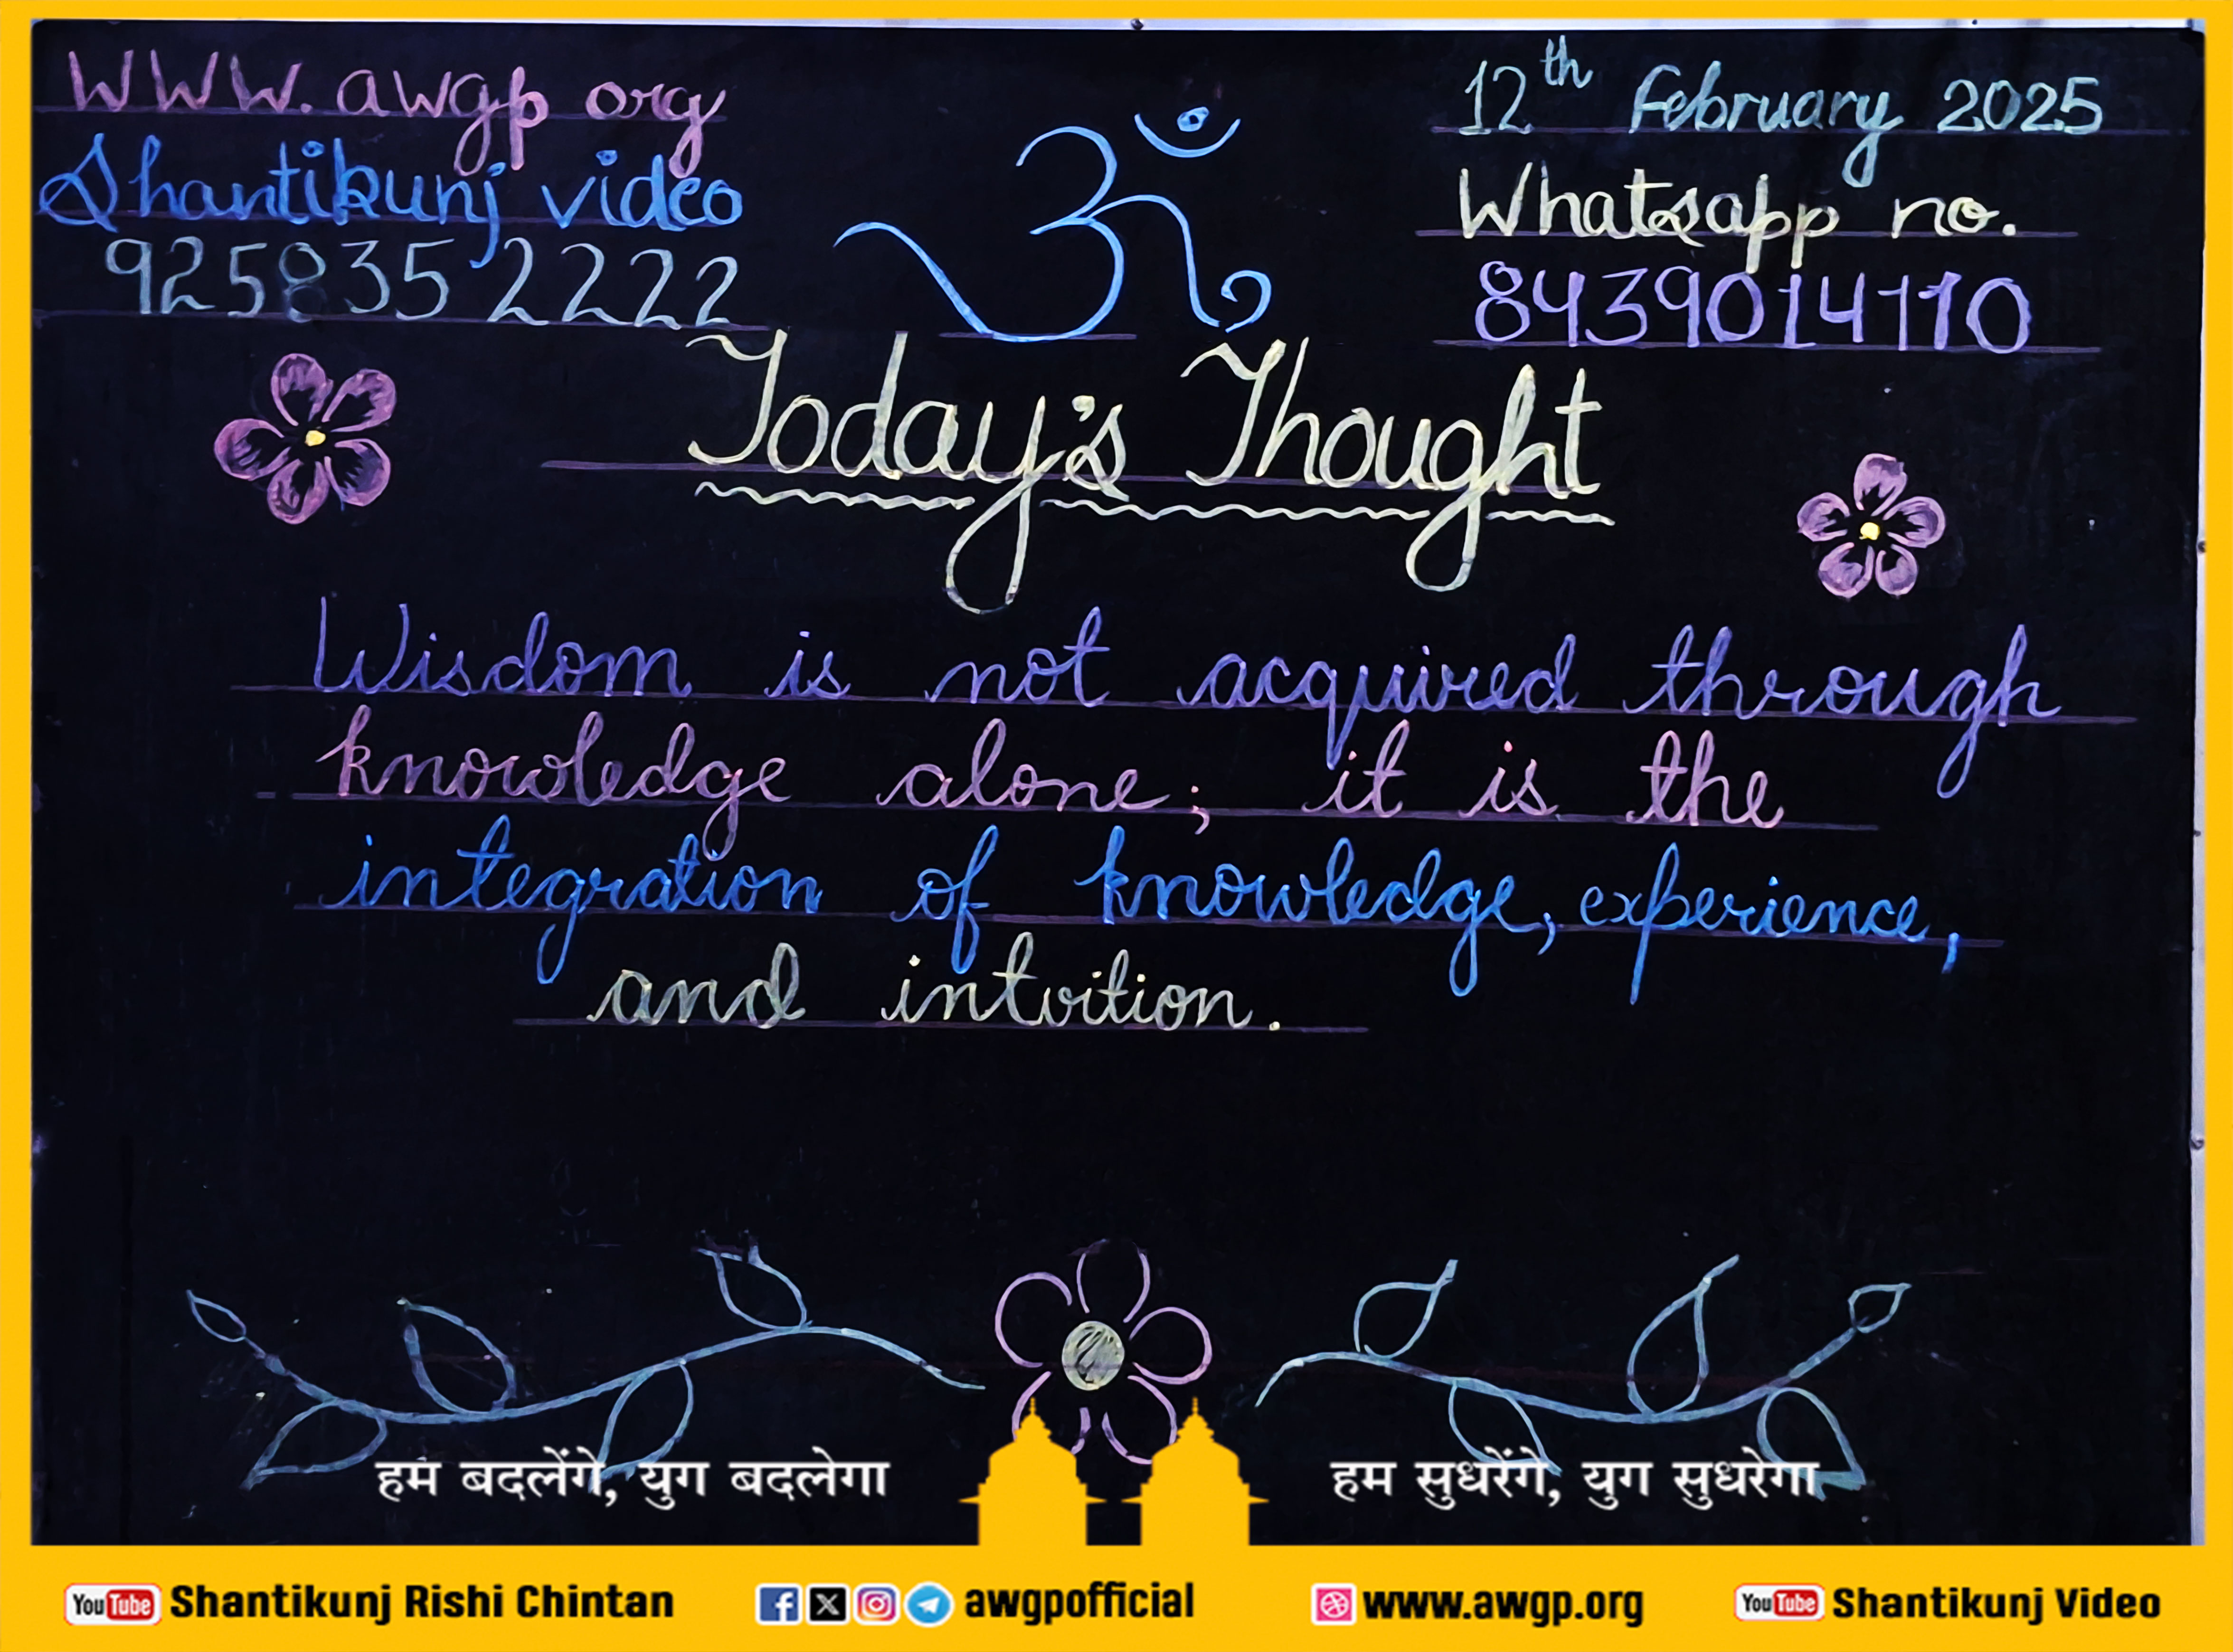 www.awgp org
Shantikunj video
925835 2222
ॐ
12th February 2025
Whatsapp no.
8439014110
Today's Thought
Wisdom is not acquired through
knowledge alone; it is the
integration of knowledge, experience,
and intuition.
हम बदलेंगे, युग बदलेगा
हम सुधरेंगे, युग सुधरेगा
YouTube Shantikunj Rishi Chintan
awgpofficial
www.awgp.org
YouTube Shantikunj Video